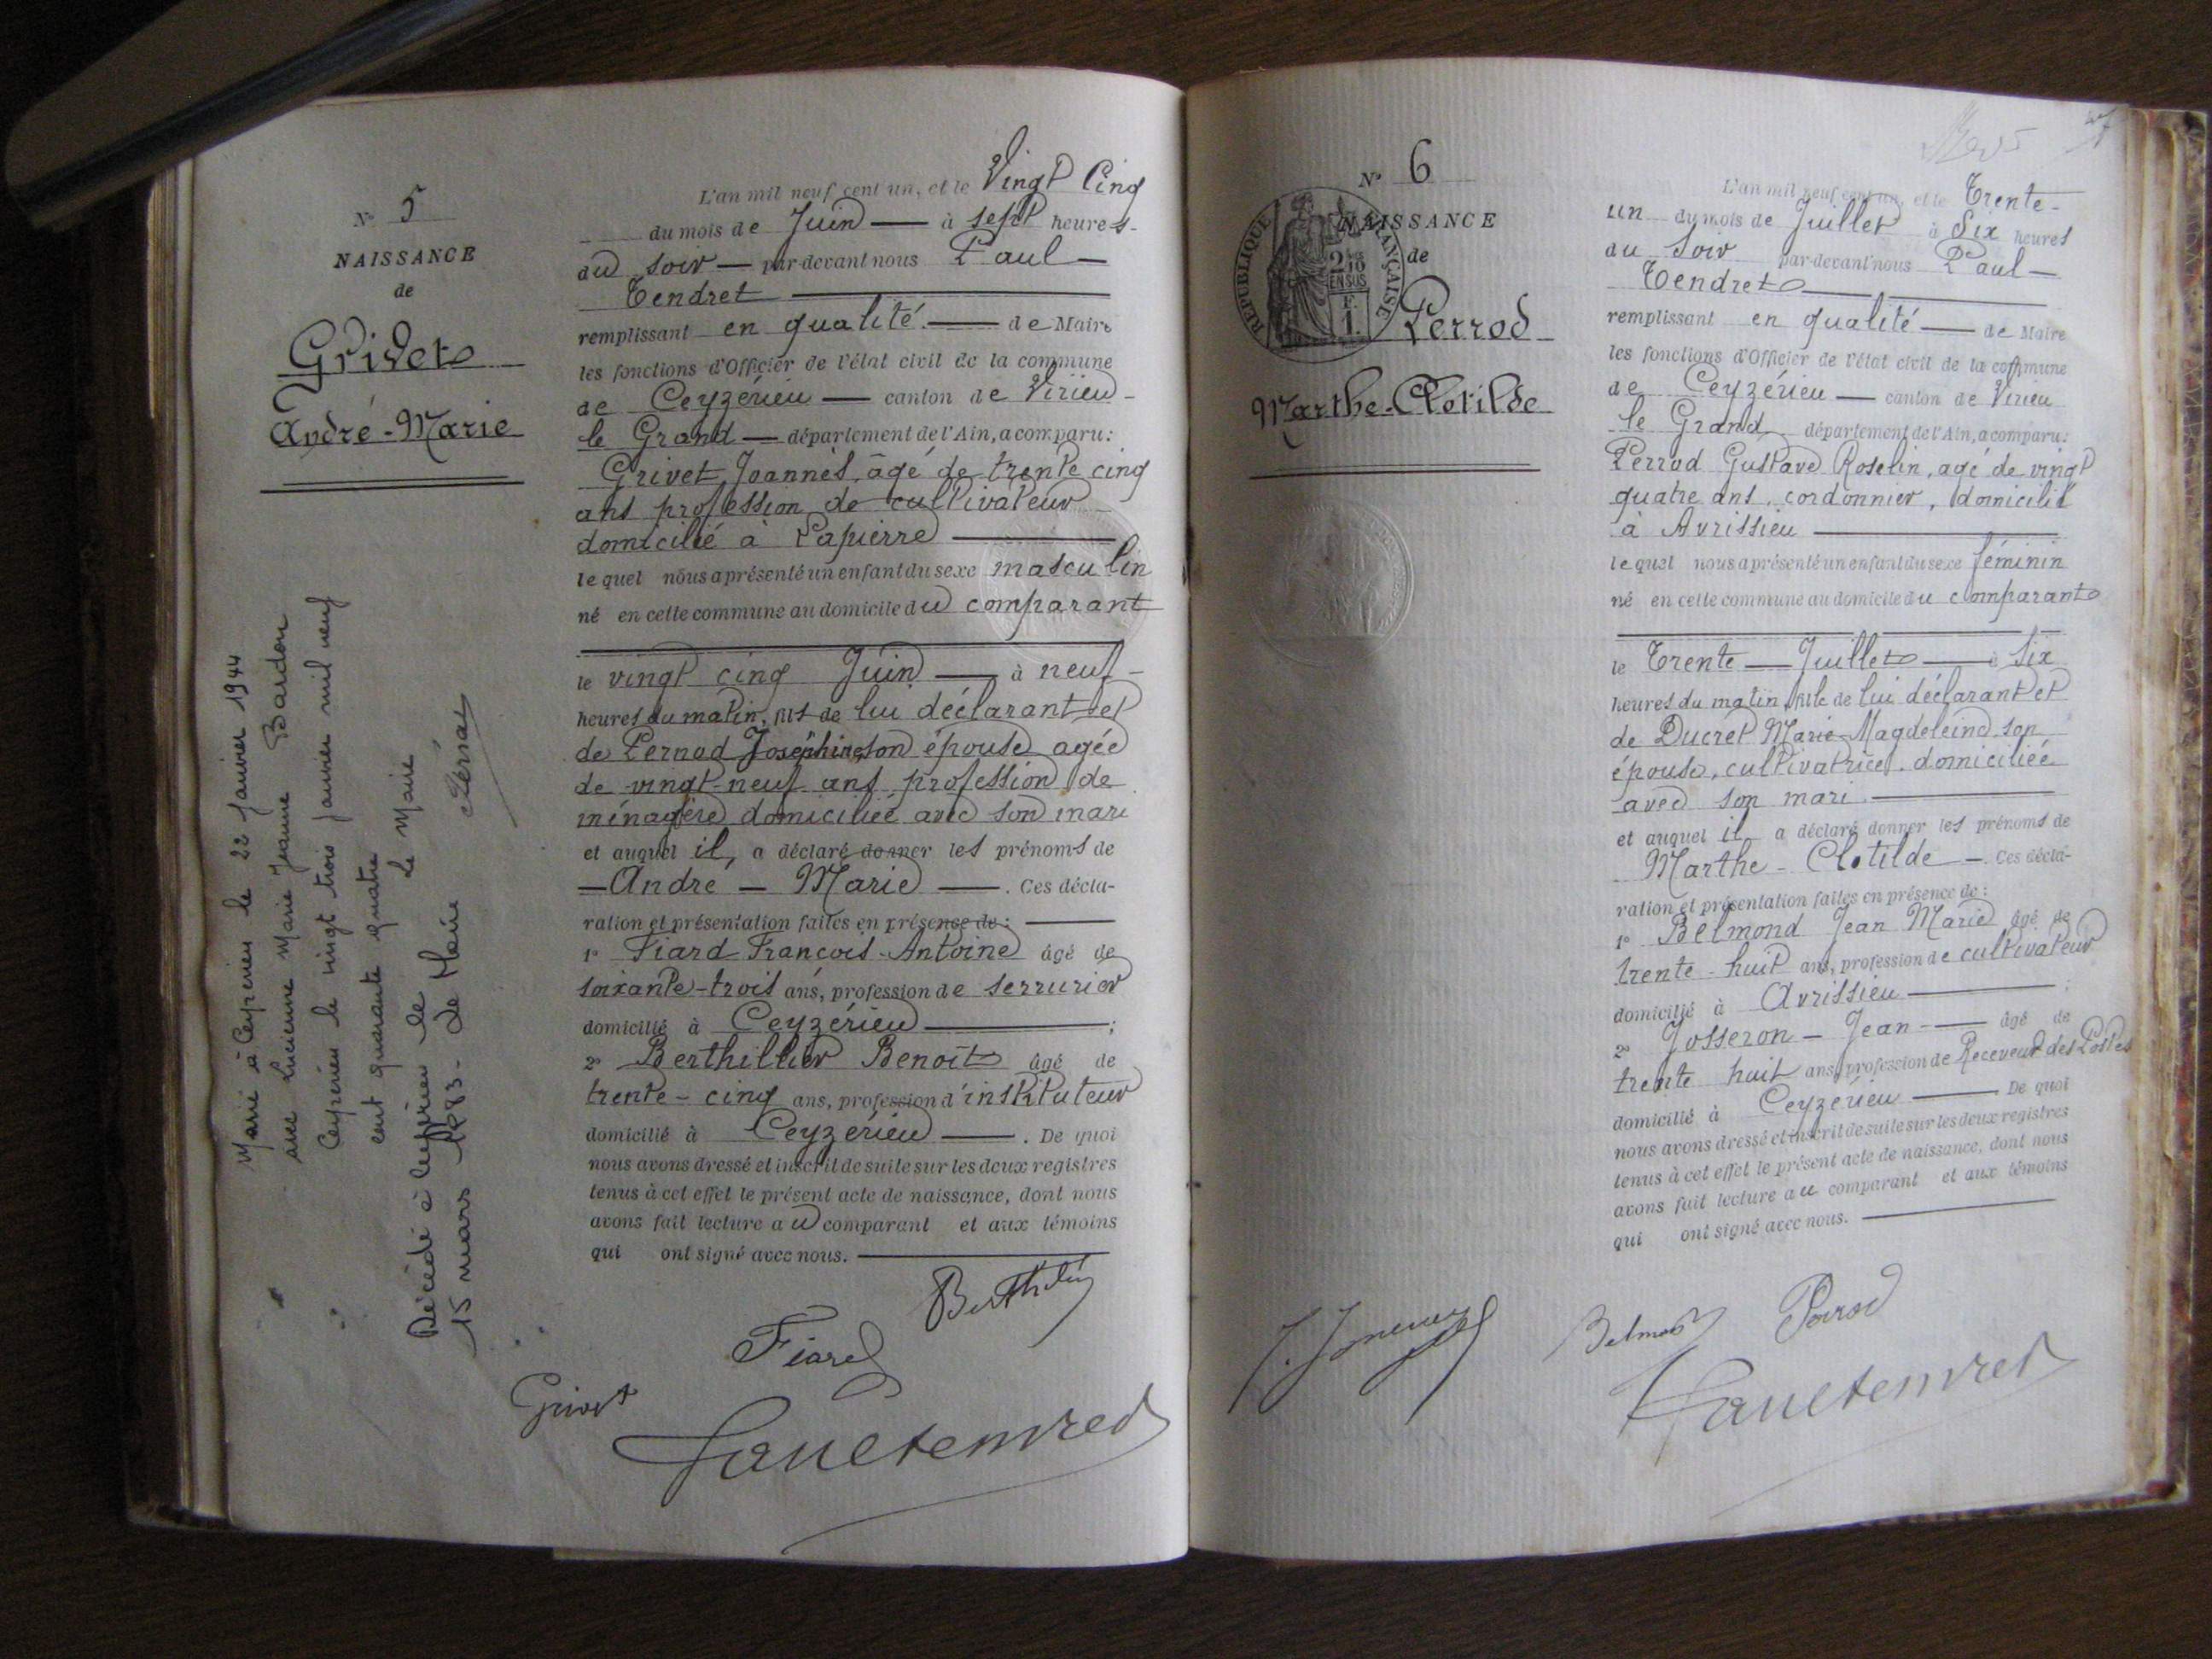 N° 5
NAISSANCE
de
Grivet
André-Marie
Marié à Ceyzérieu le 22 Janvier 1944
avec Lucienne Marie Jeanne Bardon
Ceyzérieu le vingt trois janvier mil neuf
cent quarante quatre
Le Maire
Décédé à Ceyzérieu le
15 mars 1983 -
L'an mil neuf cent un, et le Vingt Cinq
du mois de Juin — à sept heures
du soir — par-devant nous Paul —
Tendret —
remplissant en qualité — de Maire
les fonctions d'Officier de l'état civil de la commune
de Ceyzérieu — canton de Virieu -
le Grand — département de l'Ain, a comparu :
Grivet Joannès, âgé de trente cinq
ans profession de cultivateur
domicilié à Lapierre —
lequel nous a présenté un enfant du sexe masculin
né en cette commune au domicile du comparant
le vingt cinq Juin — à neuf -
heures du matin, fils de lui déclarant et
de Pernod Joséphine son épouse agée
de vingt-neuf ans profession de
ménagère domiciliée avec son mari
et auquel il, a déclaré donner les prénoms de
— André — Marie — . Ces décla-
ration et présentation faites en présence de : —
1° Fiard François-Antoine âgé de
soixante-trois ans, profession de serrurier
domicilié à Ceyzérieu — ;
2° Berthillier Benoît âgé de
trente - cinq ans, profession d'instituteur
domicilié à Ceyzérieu — . De quoi
nous avons dressé et inscrit de suite sur les deux registres
tenus à cet effet le présent acte de naissance, dont nous
avons fait lecture au comparant et aux témoins
qui ont signé avec nous. —
Fiard
Grivet
N° 6
RÉPUBLIQUE FRANÇAISE
NAISSANCE
de
Perrod
Marthe-Clotilde
L'an mil neuf cent un, et le Trente -
un du mois de Juillet à Six heures
du soir par-devant nous Paul —
Tendret —
remplissant en qualité — de Maire
les fonctions d'Officier de l'état civil de la commune
de Ceyzérieu — canton de Virieu
le Grand département de l'Ain, a comparu :
Perrod Gustave Roselin, agé de vingt
quatre ans, cordonnier, domicilié
à Avrissieu —
lequel nous a présenté un enfant du sexe féminin
né en cette commune au domicile du comparant
le Trente — Juillet — à Six
heures du matin fille de lui déclarant et
de Ducret Marie Magdeleine son
épouse, cultivatrice, domiciliée
avec son mari. —
et auquel il a déclaré donner les prénoms de
Marthe - Clotilde — . Ces décla-
ration et présentation faites en présence de :
1° Belmond Jean Marie âgé de
trente - huit ans, profession de cultivateur
domicilié à Avrissieu — ;
2° Josseron — Jean — âgé de
trente huit ans, profession de Receveur des Postes
domicilié à Ceyzérieu — . De quoi
nous avons dressé et inscrit de suite sur les deux registres
tenus à cet effet le présent acte de naissance, dont nous
avons fait lecture au comparant et aux témoins
qui ont signé avec nous. —
Perrod